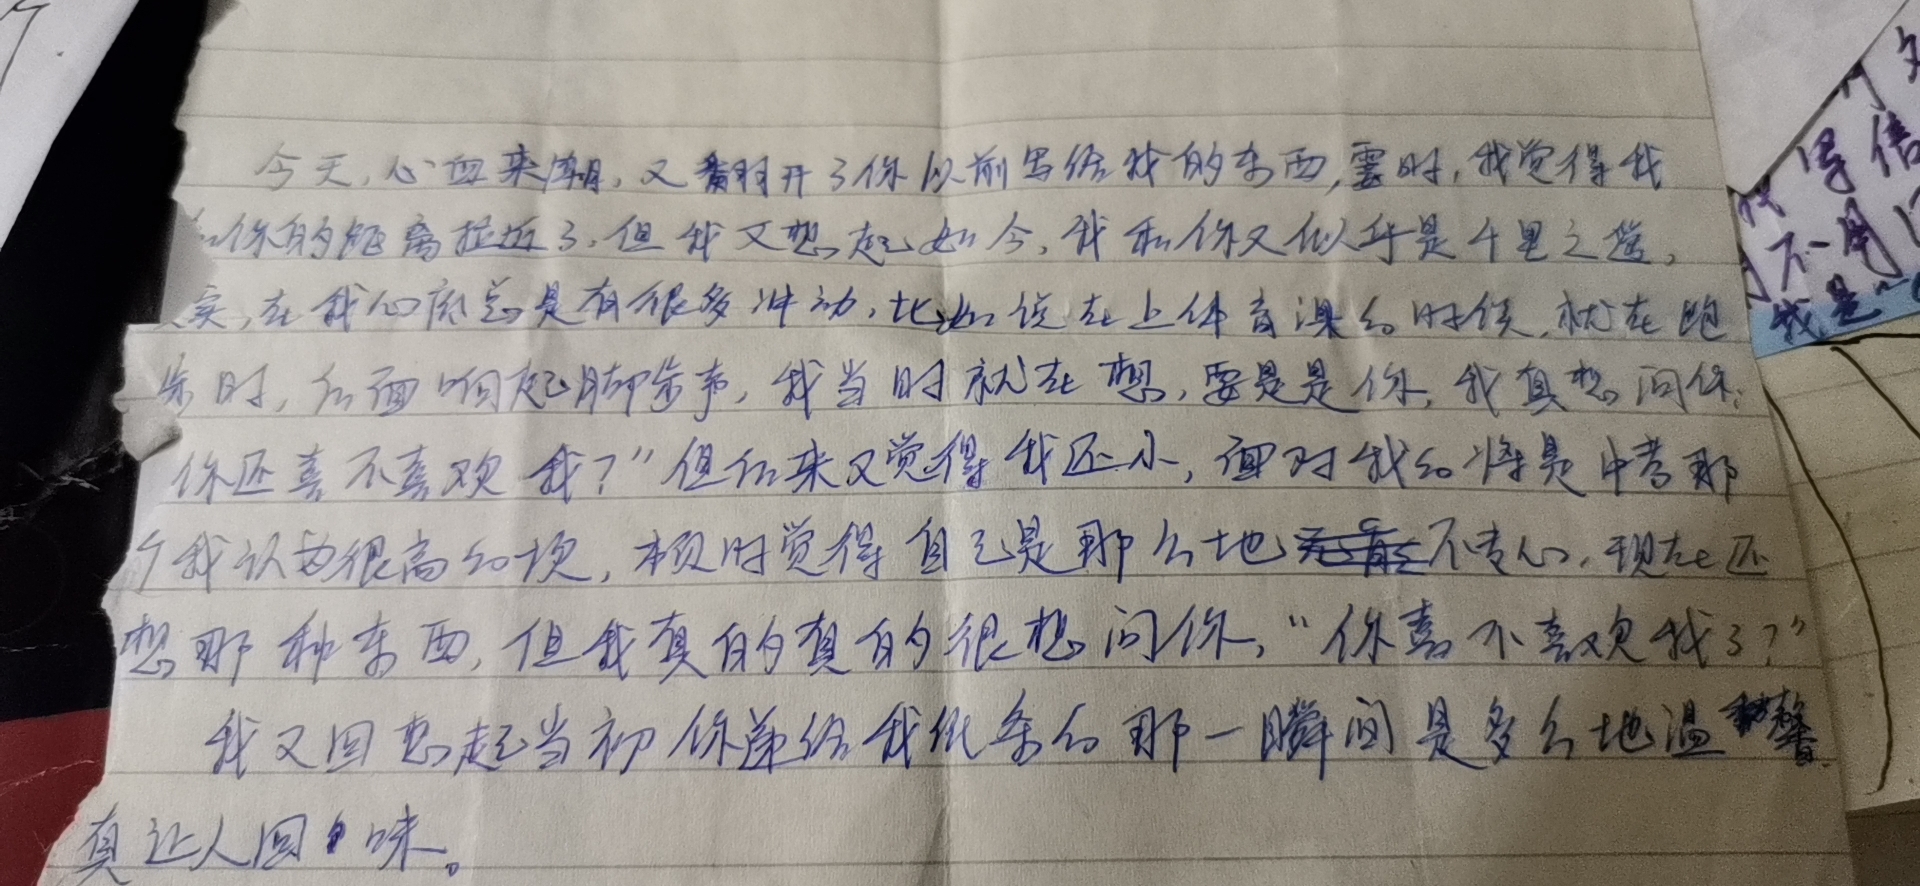 今天,心血来潮,又翻开了你以前写给我的东西,霎时,我觉得我
和你的距离拉近了,但我又想起如今,我和你又似乎是千里之遥,
实,在我心底总是有很多冲动,比如说在上体育课的时候,就在跑
步时,后面响起脚步声,我当时就在想,要是是你,我真想问你:
你还喜不喜欢我?"但后来又觉得我还小,面对我的将是中考那
个我认为很高的坎,顿时觉得自己是那么地不专心,现在还
想那种东西,但我真的真的很想问你,"你喜不喜欢我了?"
我又回想起当初你递给我纸条的那一瞬间是多么地温馨.
真让人回味。
得信
不一用
我是